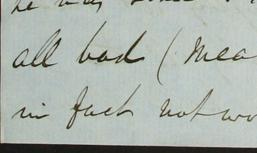 he was
all bad (mea
in fact not wo